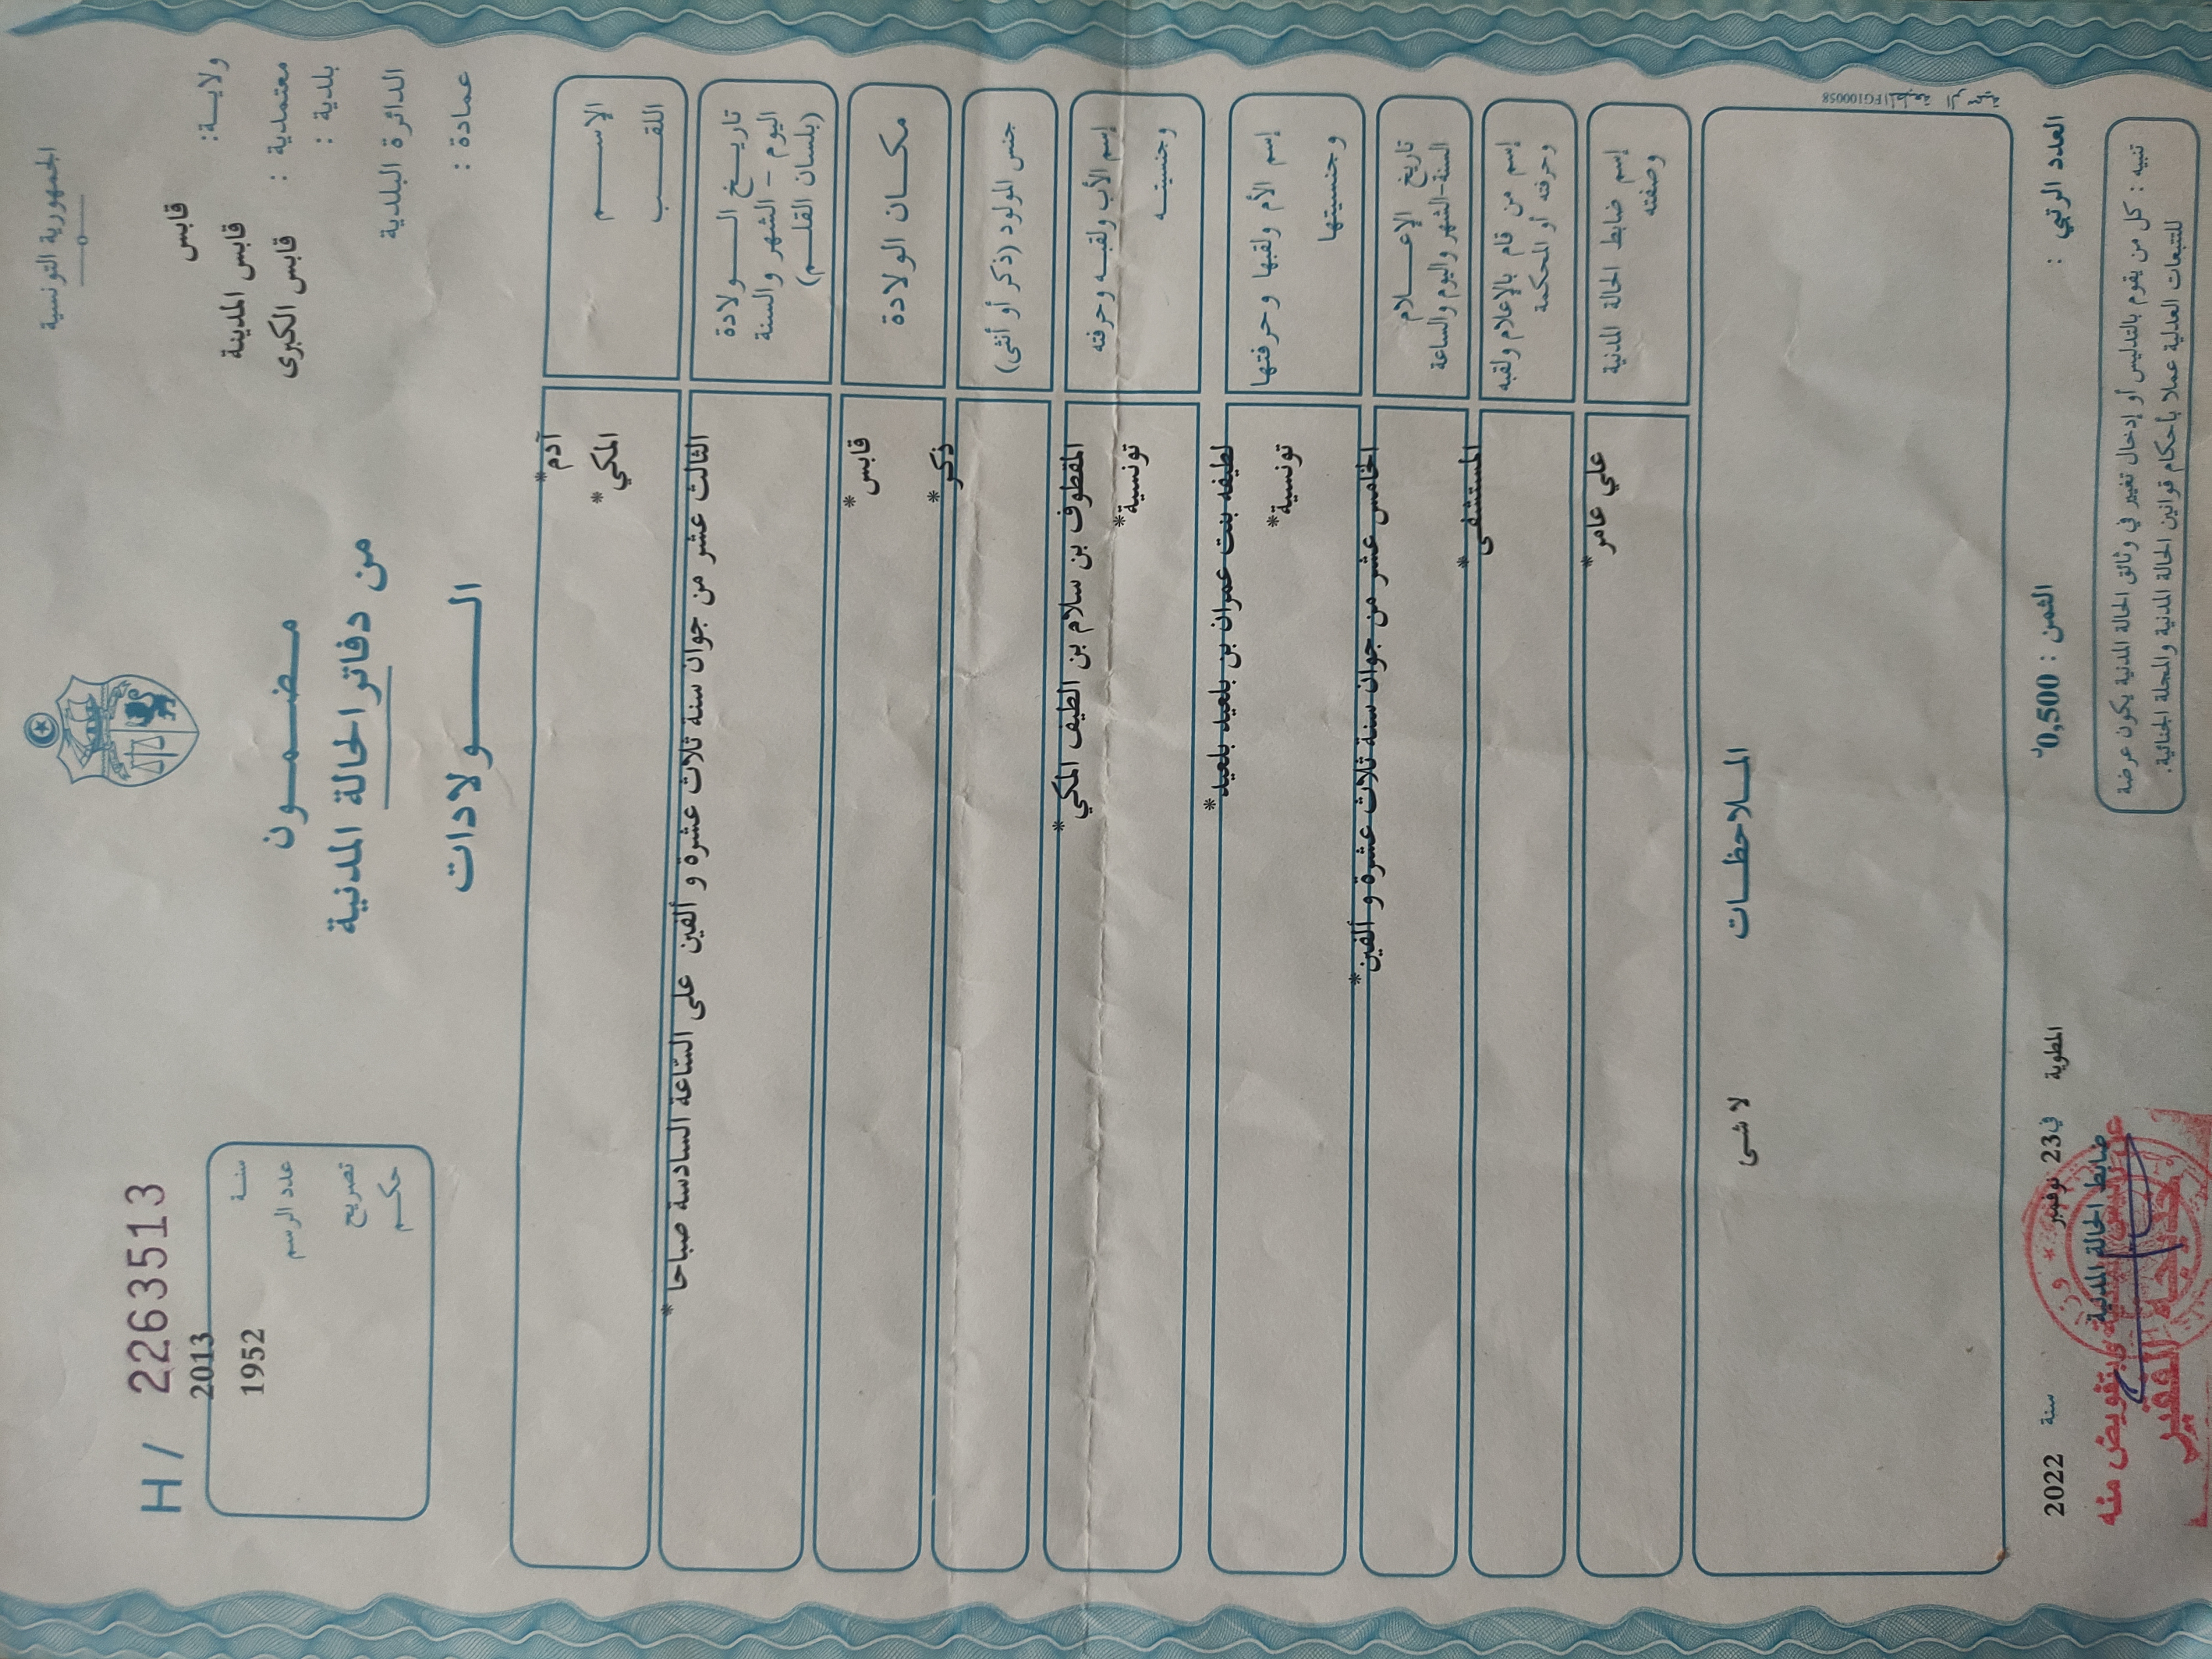 الجمهورية التونسية
ولايـــة: قابس
معتمدية : قابس المدينة
بلدية : قابس الكبرى
الدائرة البلدية
عمادة :
مـضـمـــون
من دفاتر الحالة المدنية
الـــــولادات
H / 2263513
سنــة 2013
عدد الرسم 1952
تصريح
حكــم
الإســـــم آدم*
اللقـــب المكي*
تاريــخ الــــولادة
اليوم - الشهر والسنة
(بلسان القلـــم)
الثالث عشر من جوان سنة ثلاث عشرة و ألفين على الساعة السادسة صباحا*
مكـــان الولادة قابس*
جنس المولود (ذكر أو أنثى) ذكر*
إسم الأب ولقبــه وحرفته المقطوف بن سلام بن الطيف المكي*
وجنسيتــه تونسية*
إسم الأم ولقبها وحرفتها لطيفه بنت عمران بن بلعيد بلعيد*
وجنسيتها تونسية*
تاريخ الإعـــلام
السنة-الشهر واليوم والساعة
الخامس عشر من جوان سنة ثلاث عشرة و ألفين*
إسم من قام بالإعلام ولقبه
وحرفته أو المحكمة
المستشفى*
إسم ضابط الحالة المدنية
وصفته
علي عامر*
المـــلاحظـــات
لا شى
FG100058
العدد الرتبي :
الثمن : 0,500د
المطوية في 23 نوفمبر سنة 2022
ضابط الحالة المدنية
بتفويض منه
خديجة الفقير
تنبيه : كل من يقوم بالتدليس أو إدخال تغيير في وثائق الحالة المدنية يكون عرضة
للتتبعات العدلية عملا بأحكام قوانين الحالة المدنية والمجلة الجنائية.